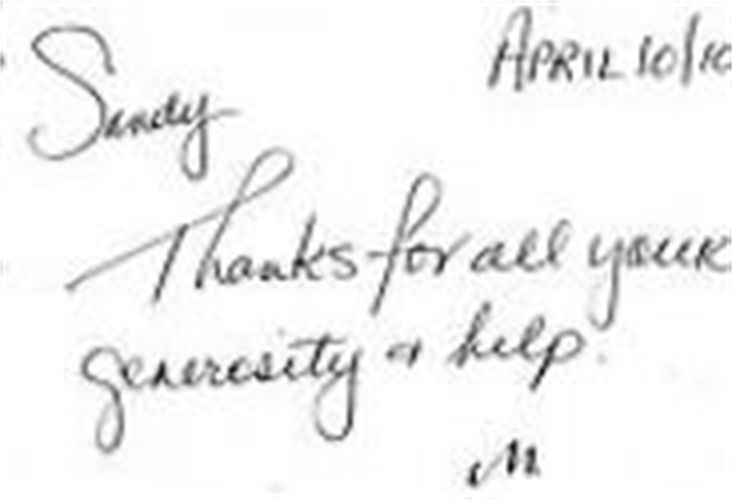 April 10/10
Sandy
Thanks for all your
generosity & help.
M.